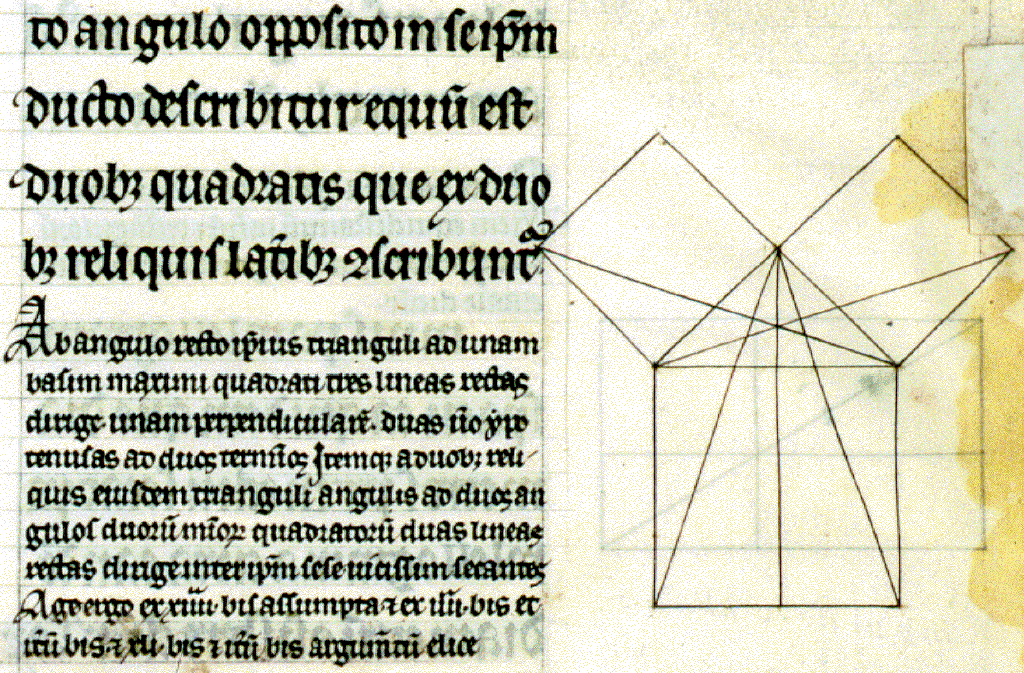 to angulo opposito in seip̄m
ducto describitur equū est
duobꝫ quadratis que ex duo
bꝫ reliquis latībꝫ ꝯscribunt᷑
Ab angulo recto ip̄ius trianguli ad unam
basim maximi quadrati tres lineas rectas
dirige unam perpendicularē. duas ūo ypo
tenusas ad duos Itemqꝫ a duobꝫ reli
quis eiusdem trianguli angulis ad duos an
gulos duorū mīoꝝ quadratorū duas lineas
rectas dirige inter ip̄m sese uicissim secantes
Age ergo ex bis assumpta ⁊ ex bis et
bis ⁊ xli. bis ⁊ bis argum̄tū elice